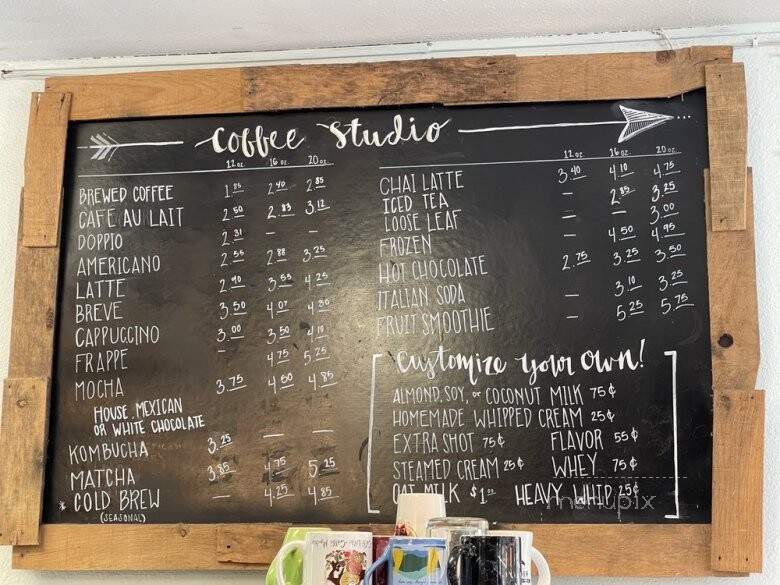 Coffee Studio
12 oz. 16 oz. 20 oz.
BREWED COFFEE 1.85 2.40 2.85
CAFE AU LAIT 2.50 2.83 3.12
DOPPIO 2.31 — —
AMERICANO 2.55 2.88 3.25
LATTE 2.90 3.55 4.25
BREVE 3.50 4.07 4.80
CAPPUCCINO 3.00 3.50 4.10
FRAPPE — 4.75 5.25
MOCHA 3.75 4.50 4.85
HOUSE, MEXICAN
OR WHITE CHOCOLATE
KOMBUCHA 3.25 — —
MATCHA 3.85 4.75 5.25
* COLD BREW — 4.25 4.85
(SEASONAL)
12 oz. 16 oz. 20 oz.
CHAI LATTE 3.40 4.10 4.75
ICED TEA — 2.85 3.25
LOOSE LEAF — — 3.00
FROZEN — 4.50 4.95
HOT CHOCOLATE 2.75 3.25 3.50
ITALIAN SODA — 3.10 3.25
FRUIT SMOOTHIE — 5.25 5.75
Customize your own!
ALMOND, SOY, or COCONUT MILK 75¢
HOMEMADE WHIPPED CREAM 25¢
EXTRA SHOT 75¢ FLAVOR 55¢
STEAMED CREAM 25¢ WHEY 75¢
OAT MILK $1.00 HEAVY WHIP 25¢
menupix